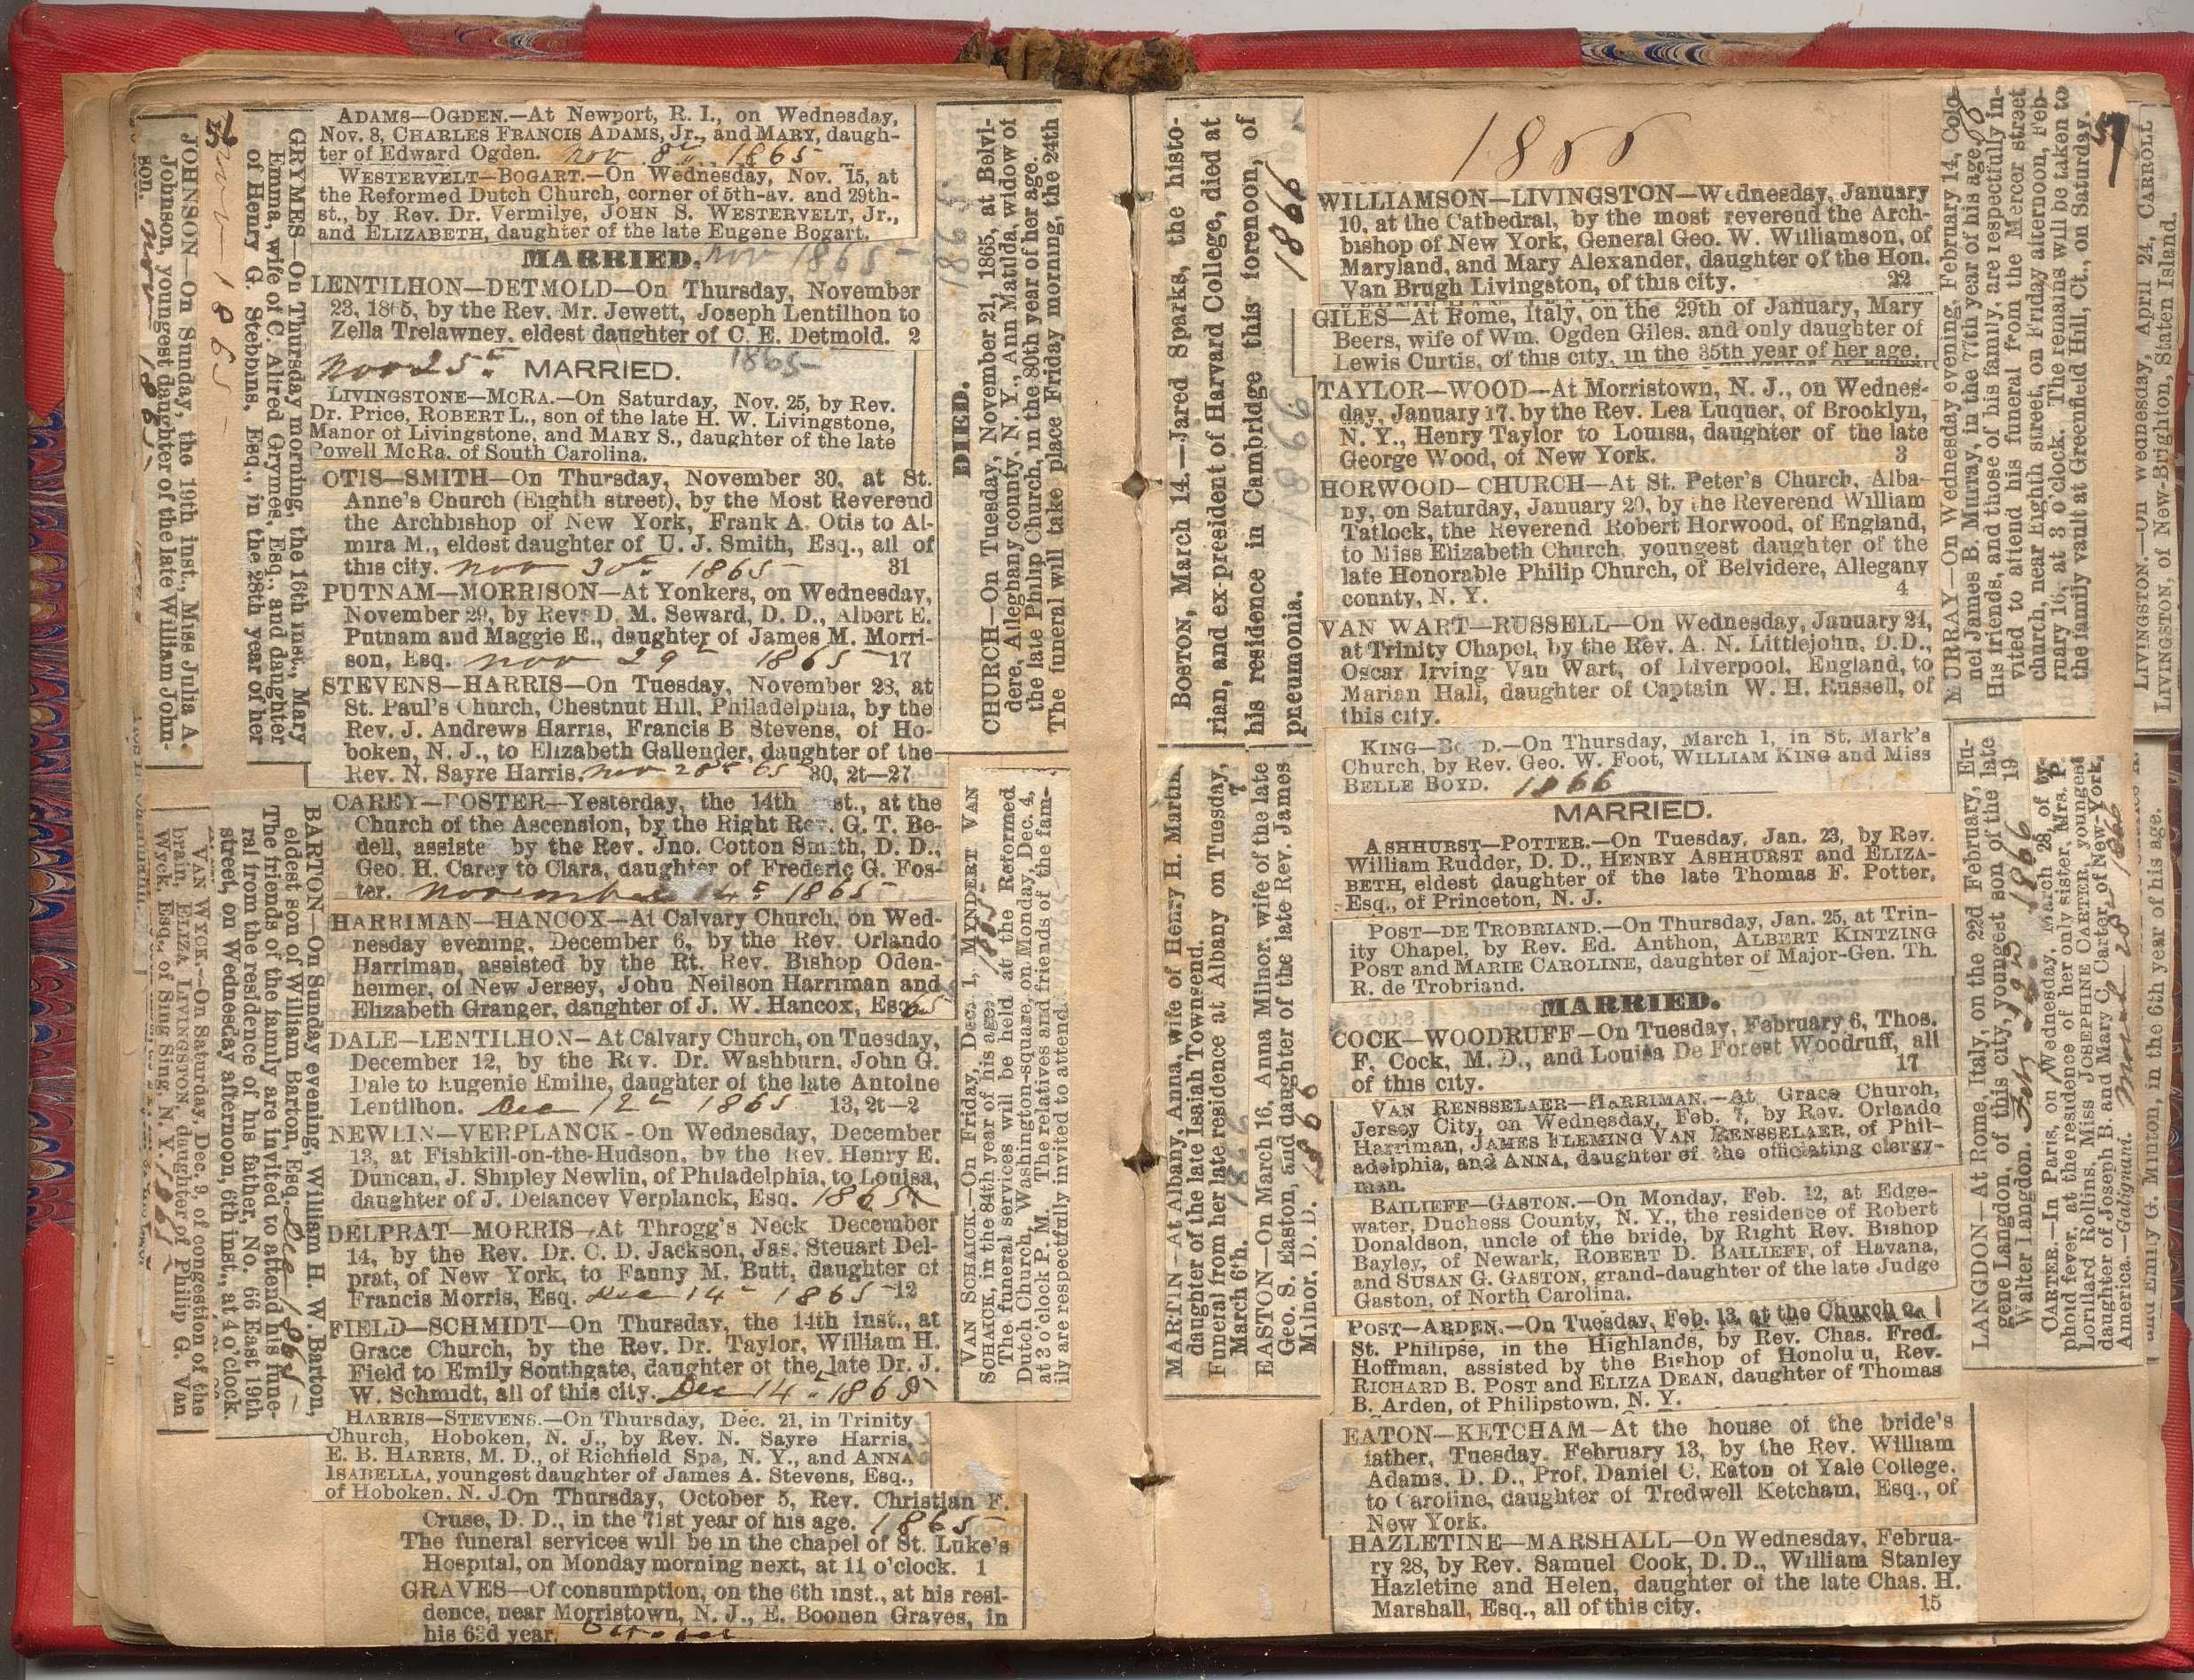 ADAMS—OGDEN.—At Newport, R. I., on Wednesday,
Nov. 8, CHARLES FRANCIS ADAMS, Jr., and MARY, daugh-
ter of Edward Ogden. Nov 8th 1865
WESTERVELT—BOGART.—On Wednesday, Nov. 15, at
the Reformed Dutch Church, corner of 5th-av. and 29th-
st., by Rev. Dr. Vermilye, JOHN S. WESTERVELT, Jr.,
and ELIZABETH, daughter of the late Eugene Bogart.
MARRIED. Nov 1865
LENTILHON—DETMOLD—On Thursday, November
23, 1865, by the Rev. Mr. Jewett, Joseph Lentilhon to
Zella Trelawney, eldest daughter of C. E. Detmold. 2
Nov 25th MARRIED. 1865
LIVINGSTONE—MCRA.—On Saturday, Nov. 25, by Rev.
Dr. Price, ROBERT L., son of the late H. W. Livingstone,
Manor of Livingstone, and MARY S., daughter of the late
Powell McRa, of South Carolina.
OTIS—SMITH—On Thursday, November 30, at St.
Anne's Church (Eighth street), by the Most Reverend
the Archbishop of New York, Frank A. Otis to Al-
mira M., eldest daughter of U. J. Smith, Esq., all of
this city. Nov 30th 1865 31
PUTNAM—MORRISON—At Yonkers, on Wednesday,
November 29, by Rev. D. M. Seward, D. D., Albert E.
Putnam and Maggie E., daughter of James M. Morri-
son, Esq. Nov 29th 1865 17
STEVENS—HARRIS—On Tuesday, November 28, at
St. Paul's Church, Chestnut Hill, Philadelphia, by the
Rev. J. Andrews Harris, Francis B. Stevens, of Ho-
boken, N. J., to Elizabeth Gallender, daughter of the
Rev. N. Sayre Harris. Nov 28th 65 30, 2t—27
CAREY—FOSTER—Yesterday, the 14th inst., at the
Church of the Ascension, by the Right Rev. G. T. Be-
dell, assisted by the Rev. Jno. Cotton Smith, D. D.,
Geo. H. Carey to Clara, daughter of Frederic G. Fos-
ter. November 14th 1865
HARRIMAN—HANCOX—At Calvary Church, on Wed-
nesday evening, December 6, by the Rev. Orlando
Harriman, assisted by the Rt. Rev. Bishop Oden-
heimer, of New Jersey, John Neilson Harriman and
Elizabeth Granger, daughter of J. W. Hancox, Esq. 65
DALE—LENTILHON—At Calvary Church, on Tuesday,
December 12, by the Rev. Dr. Washburn, John G.
Dale to Eugenie Emilie, daughter of the late Antoine
Lentilhon. Dec 12th 1865 13, 2t—2
NEWLIN—VERPLANCK-On Wednesday, December
13, at Fishkill-on-the-Hudson, by the Rev. Henry E.
Duncan, J. Shipley Newlin, of Philadelphia, to Louisa,
daughter of J. Delancey Verplanck, Esq. 1865
DELPRAT—MORRIS—At Throgg's Neck December
14, by the Rev. Dr. C. D. Jackson, Jas. Steuart Del-
prat, of New York, to Fanny M. Butt, daughter of
Francis Morris, Esq. Dec 14th 1865 12
FIELD—SCHMIDT—On Thursday, the 14th inst., at
Grace Church, by the Rev. Dr. Taylor, William H.
Field to Emily Southgate, daughter of the late Dr. J.
W. Schmidt, all of this city. Dec 14th 1865
HARRIS—STEVENS.—On Thursday, Dec. 21, in Trinity
Church, Hoboken, N. J., by Rev. N. Sayre Harris,
E. B. HARRIS, M. D., of Richfield Spa, N. Y., and ANNA
ISABELLA, youngest daughter of James A. Stevens, Esq.,
of Hoboken, N. J.
On Thursday, October 5, Rev. Christian F.
Cruse, D. D., in the 71st year of his age. 1865
The funeral services will be in the chapel of St. Luke's
Hospital, on Monday morning next, at 11 o'clock. 1
GRAVES—Of consumption, on the 6th inst., at his resi-
dence, near Morristown, N. J., E. Boonen Graves, in
his 63d year. October
JOHNSON—On Sunday, the 19th inst., Miss Julia A.
Johnson, youngest daughter of the late William John-
son. Nov 1865
Nov 1865
GRYMES—On Thursday morning, the 16th inst., Mary
Emma, wife of C. Alfred Grymes, Esq., and daughter
of Henry G. Stebbins, Esq., in the 28th year of her
BARTON—On Sunday evening, William H. W. Barton,
eldest son of William Barton, Esq. Dec 1865
The friends of the family are invited to attend his fune-
ral from the residence of his father, No. 66 East 19th
street, on Wednesday afternoon, 6th inst., at 4 o'clock.
VAN WYCK.—On Saturday, Dec. 9, of congestion of the
brain, ELIZA LIVINGSTON, daughter of Philip G. Van
Wyck, Esq., of Sing Sing, N. Y. 1865
1865
DIED.
CHURCH—On Tuesday, November 21, 1865, at Belvi-
dere, Alleghany county, N. Y., Ann Matilda, widow of
the late Philip Church, in the 80th year of her age.
The funeral will take place Friday morning, the 24th
VAN SCHAICK.—On Friday, Dec. 1, MYNDERT VAN
SCHAICK, in the 84th year of his age. 1865
The funeral services will be held at the Reformed
Dutch Church, Washington-square, on Monday, Dec. 4,
at 3 o'clock P. M. The relatives and friends of the fam-
ily are respectfully invited to attend.
BOSTON, March 14.—Jared Sparks, the histo-
rian, and ex-president of Harvard College, died at
his residence in Cambridge this forenoon, of
pneumonia. 1866
1866
MARTIN—At Albany, Anna, wife of Henry H. Martin,
daughter of the late Isaiah Townsend. 7
Funeral from her late residence at Albany on Tuesday,
March 6th. 1866
EASTON—On March 16, Anna Milnor, wife of the late
Geo. S. Easton, and daughter of the late Rev. James
Milnor, D. D. 1866
1866
WILLIAMSON—LIVINGSTON—Wednesday, January
10, at the Cathedral, by the most reverend the Arch-
bishop of New York, General Geo. W. Williamson, of
Maryland, and Mary Alexander, daughter of the Hon.
Van Brugh Livingston, of this city. 22
GILES—At Rome, Italy, on the 29th of January, Mary
Beers, wife of Wm. Ogden Giles, and only daughter of
Lewis Curtis, of this city, in the 35th year of her age.
TAYLOR—WOOD—At Morristown, N. J., on Wednes-
day, January 17, by the Rev. Lea Luquer, of Brooklyn,
N. Y., Henry Taylor to Louisa, daughter of the late
George Wood, of New York. 3
HORWOOD—CHURCH—At St. Peter's Church, Alba-
ny, on Saturday, January 20, by the Reverend William
Tatlock, the Reverend Robert Horwood, of England,
to Miss Elizabeth Church, youngest daughter of the
late Honorable Philip Church, of Belvidere, Allegany
county, N. Y. 4
VAN WART—RUSSELL—On Wednesday, January 24,
at Trinity Chapel, by the Rev. A. N. Littlejohn, D.D.,
Oscar Irving Van Wart, of Liverpool, England, to
Marian Hall, daughter of Captain W. H. Russell, of
this city.
KING—BOYD.—On Thursday, March 1, in St. Mark's
Church, by Rev. Geo. W. Foot, WILLIAM KING and Miss
BELLE BOYD. 1866
MARRIED.
ASHHURST—POTTER.—On Tuesday, Jan. 23, by Rev.
William Rudder, D. D., HENRY ASHHURST and ELIZA-
BETH, eldest daughter of the late Thomas F. Potter,
Esq., of Princeton, N. J.
POST—DE TROBRIAND.—On Thursday, Jan. 25, at Trin-
ity Chapel, by Rev. Ed. Anthon, ALBERT KINTZING
POST and MARIE CAROLINE, daughter of Major-Gen. Th.
R. de Trobriand.
MARRIED.
COCK—WOODRUFF—On Tuesday, February 6, Thos.
F. Cock, M. D., and Louisa De Forest Woodruff, all
of this city. 17
VAN RENSSELAER—HARRIMAN.—At Grace Church,
Jersey City, on Wednesday, Feb. 7, by Rev. Orlando
Harriman, JAMES FLEMING VAN RENSSELAER, of Phil-
adelphia, and ANNA, daughter of the officiating clergy-
man.
BAILIEFF—GASTON.—On Monday, Feb. 12, at Edge-
water, Duchess County, N. Y., the residence of Robert
Donaldson, uncle of the bride, by Right Rev. Bishop
Bayley, of Newark, ROBERT D. BAILIEFF, of Havana,
and SUSAN G. GASTON, grand-daughter of the late Judge
Gaston, of North Carolina.
POST—ARDEN.—On Tuesday, Feb. 13, at the Church
St. Philipse, in the Highlands, by Rev. Chas. Fred.
Hoffman, assisted by the Bishop of Honolulu, Rev.
RICHARD B. POST and ELIZA DEAN, daughter of Thomas
B. Arden, of Philipstown, N. Y.
EATON—KETCHAM—At the house of the bride's
father, Tuesday, February 13, by the Rev. William
Adams, D. D., Prof. Daniel C. Eaton of Yale College,
to Caroline, daughter of Tredwell Ketcham, Esq., of
New York.
HAZLETINE—MARSHALL—On Wednesday, Februa-
ry 28, by Rev. Samuel Cook, D. D., William Stanley
Hazletine and Helen, daughter of the late Chas. H.
Marshall, Esq., all of this city. 15
MURRAY—On Wednesday evening, February 14, Colo-
nel James B. Murray, in the 77th year of his age.
His friends, and those of his family, are respectfully in-
vited to attend his funeral from the Mercer street
church, near Eighth street, on Friday afternoon, Feb-
ruary 16, at 3 o'clock. The remains will be taken to
the family vault at Greenfield Hill, Ct., on Saturday.
57
LANGDON—At Rome, Italy, on the 22d February, Eu-
gene Langdon, of this city, youngest son of the late
Walter Langdon. Feby 22d 1866 19
CARTER.—In Paris, on Wednesday, March 28, of ty-
phoid fever, at the residence of her only sister, Mrs. P.
Lorillard Rollins, Miss JOSEPHINE CARTER, youngest
daughter of Joseph B. and Mary C. Carter, of New-York,
America.—Galignani. March 28 1866
LIVINGSTON.—On Wednesday, April 24, CARROLL
LIVINGSTON, of New-Brighton, Staten Island.
and Emily G. Minton, in the 6th year of his age.